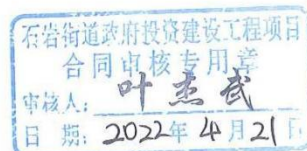 石岩街道政府投资建设工程项目
合同审核专用章
审核人:叶杰武
日 期:2022年4月21日